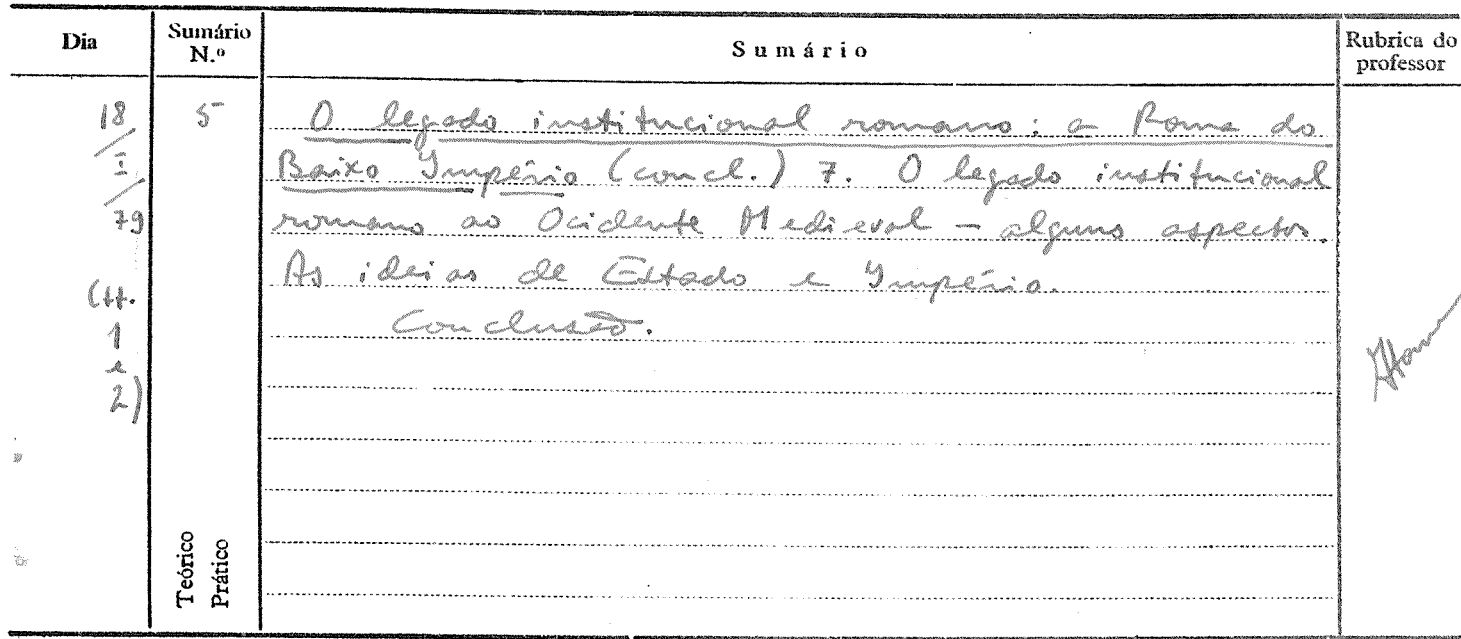 Dia
Sumário N.º
Sumário
Rubrica do professor
18
I
79
(tt.
1
e
2)
5
O legado institucional romano: a Roma do
Baixo Império (concl.) 7. O legado institucional
romano ao Ocidente Medieval — alguns aspectos.
As ideias de Estado e Império.
Conclusão.
Teórico
Prático